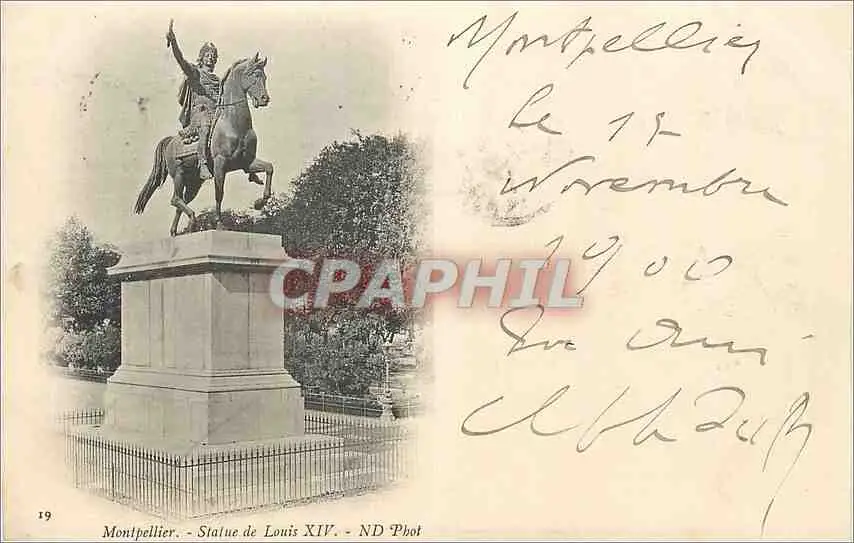 Montpellier
le 15
Novembre
1900
ami
CPAPHIL
19
Montpellier. - Statue de Louis XIV. - ND Phot